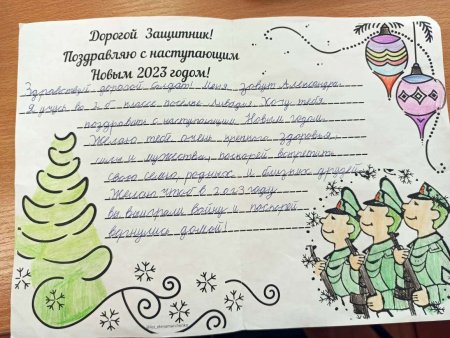 Дорогой Защитник!
Поздравляю с наступающим
Новым 2023 годом!
Здравствуй дорогой солдат! Меня зовут Александра.
Я учусь во 2 б классе посёлка Ливадия. Хочу тебя
поздравить с наступающим Новым годом.
Желаю тебе очень крепкого здоровья,
силы и мужества, поскорей встретить
свою семью, родных и близких друзей.
Желаю чтоб в 2023 году
вы выиграли войну и поскорей
вернулись домой!